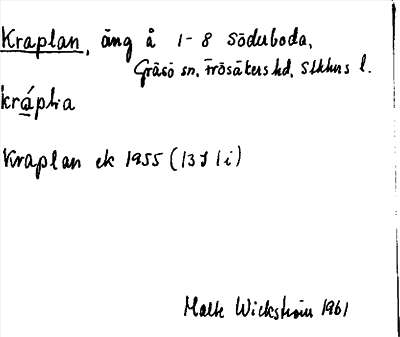 Kraplan, äng å 1-8 Söderboda,
Gräsö sn, Frösåkers hd, Sthlms l.
kráplia
Kraplan ek 1955 (13I 1i)
Malte Wickström 1961